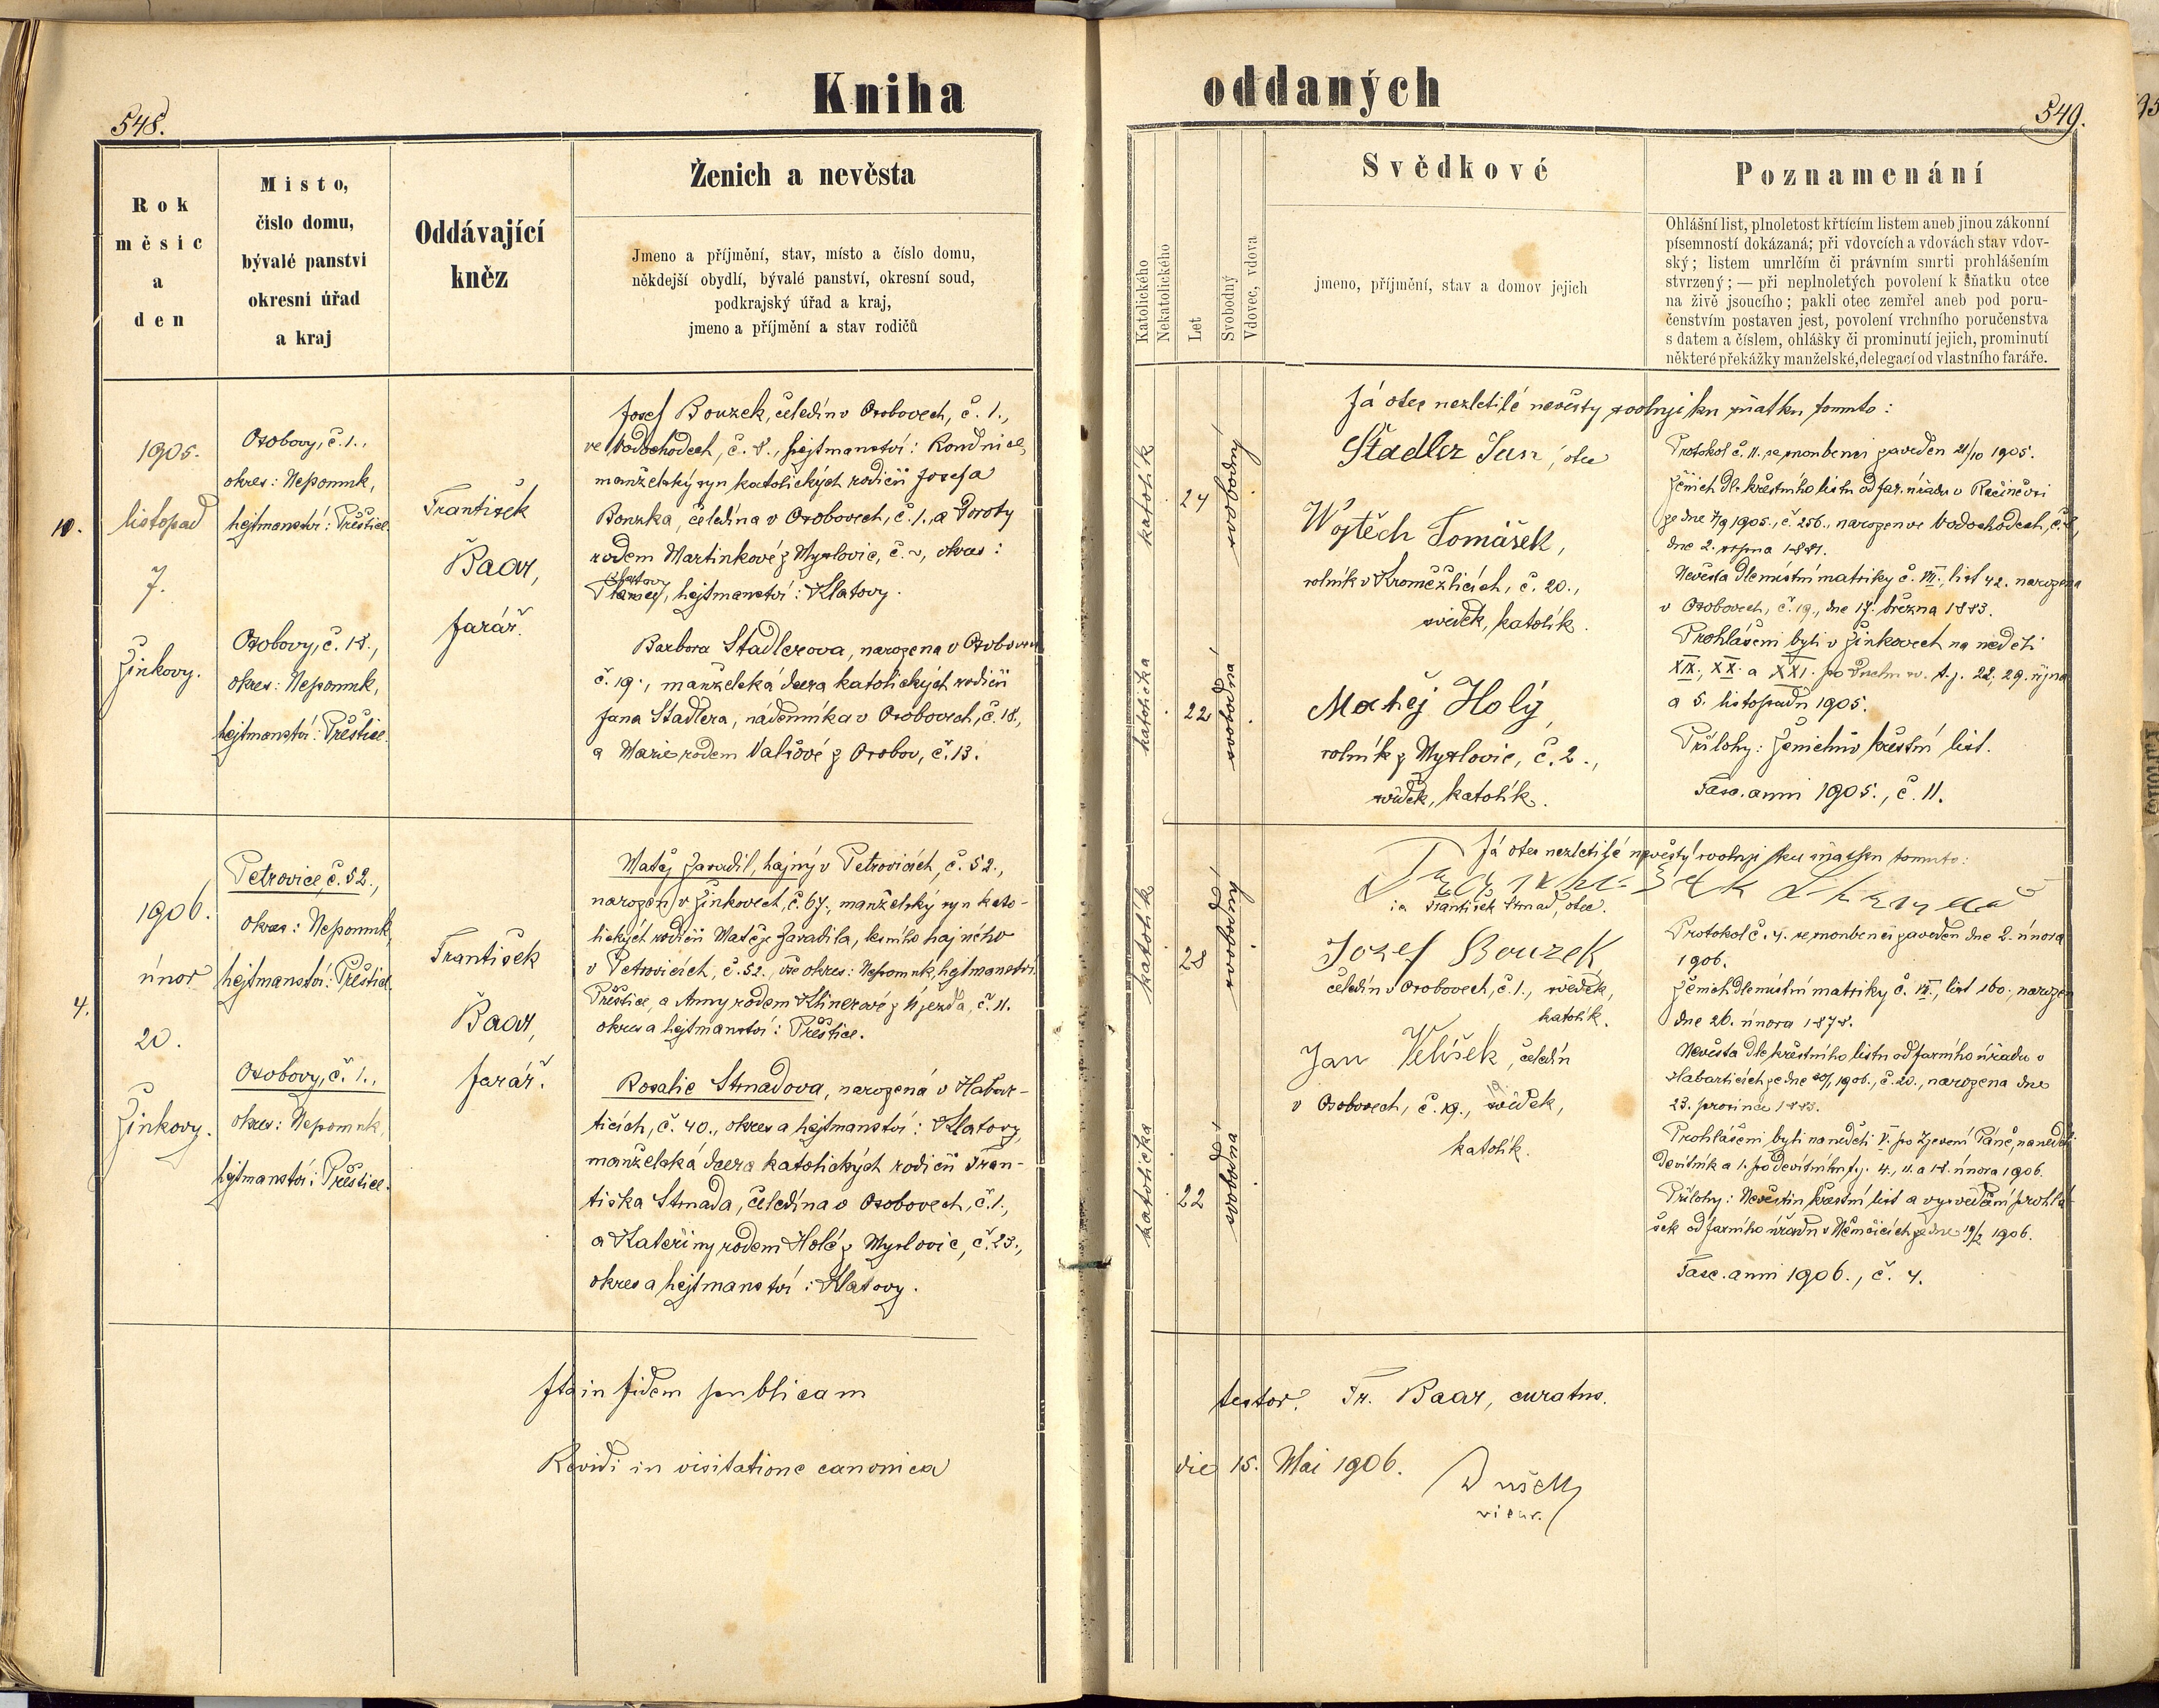 548.
Kniha
Rok
měsíc
a
den
Místo,
číslo domu,
bývalé panství
okresní úřad
a kraj
Oddávající
kněz
Ženich a nevěsta
Jmeno a příjmění, stav, místo a číslo domu,
někdejší obydlí, bývalé panství, okresní soud,
podkrajský úřad a kraj,
jmeno a příjmění a stav rodičů
10.
1905.
listopad
7.
Žinkovy.
Osobovy, č. 1.,
okres: Nepomuk,
hejtmanství: Přeštice.
Osobovy, č. 18.,
okres: Nepomuk,
hejtmanství: Přeštice.
František
Baar,
farář.
Josef Bouzek, čeledín v Osobovech, č. 1.,
ve Vodochodech, č. 8., hejtmanství: Roudnice,
manželský syn katolických rodičů Josefa
Bouzka, čeledína v Osobovech, č. 1., a Doroty
rodem Martinkové z Myslovic, č. okres:
Klatovy
hejtmanství: Klatovy.
Barbora Stadlerova, narozena v Osobovech
č. 19., manželská dcera katolických rodičů
Jana Stadlera, nádenníka v Osobovech, č. 18.,
a Marie rodem Valšové z Osobov, č. 13.
4.
1906.
únor
20.
Žinkovy.
Petrovice, č. 52.,
okres: Nepomuk,
hejtmanství: Přeštice.
Osobovy, č. 1.,
okres: Nepomuk,
hejtmanství: Přeštice.
František
Baar,
farář.
Matěj Zavadil, hajný v Petrovicích, č. 52.,
narozen v Žinkovech, č. 67., manželský syn kato-
lických rodičů Matěje Zavadila, lesního hajného
v Petrovicích, č. 52. vše okres: Nepomuk, hejtmanství
Přeštice, a Anny rodem Klinerové z Újezda, č. 11.
okres a hejtmanství: Přeštice.
Rosalie Strnadova, narozená v Habar-
ticích, č. 40., okres a hejtmanství: Klatovy,
manželská dcera katolických rodičů Fran-
tiška Strnada, čeledína v Osobovech, č. 1.,
a Kateřiny rodem Holé z Myslovic, č. 23.,
okres a hejtmanství: Klatovy.
Ita in fidem publicam
Revidi in visitatione canonica
oddaných
549.
Katolického
Nekatolického
Let
Svobodný
Vdovec, vdova
Svědkové
jmeno, příjmění, stav a domov jejich
Poznamenání
Ohlášní list, plnoletost křtícím listem aneb jinou zákonní
písemností dokázaná; při vdovcích a vdovách stav vdov-
ský; listem umrlčím či právním smrti prohlášením
stvrzený; — při neplnoletých povolení k sňatku otce
na živě jsoucího; pakli otec zemřel aneb pod poru-
čenstvím postaven jest, povolení vrchního poručenstva
s datem a číslem, ohlášky či prominutí jejich, prominutí
některé překážky manželské, delegací od vlastního faráře.
katolík
24
svobodný
katolička
22
svobodna
Já otec nezletilé nevěsty svoluji ku sňatku tomuto:
Štadler Jan, otec
Wojtěch Tomášek,
rolník v Kroměždicích, č. 20.,
svědek, katolík.
Matěj Holý,
rolník z Myslovic, č. 2.,
svědek, katolík.
Protokol č. 11. se snoubenci zaveden 21/10 1905.
Ženich dle křestního listu od far. úřadu v Račiněvsi
ze dne 7/9 1905., č. 256., narozen ve Vodochodech, č. 8,
dne 2. srpna 1881.
Nevěsta dle místní matriky č. VII., list 42. narozena
v Osobovech, č. 19., dne 17. března 1883.
Prohlášeni byli v Žinkovech na neděli
XIX., XX. a XXI. po Duchu sv. t. j. 22., 29. října
a 5. listopadu 1905.
Přílohy: Ženichův křestní list.
Fasc. anni 1905., č. 11.
katolík
28
svobodný
katolička
22
svobodna
Já otec nezletilé nevěsty svoluji ku sňatku tomuto:
František Strnad, otec.
Jozef Bouzek
čeledín v Osobovech, č. 1., svědek,
katolík.
Jan Velíšek, čeledín
v Osobovech, č. 19., svědek,
katolík.
Protokol č. 4. se snoubenci zaveden dne 2. února
1906.
Ženich dle místní matriky č. VI., list 160., narozen
dne 26. února 1878.
Nevěsta dle křestního listu od farního úřadu v
Habarticích ze dne 1906., č. 20., narozena dne
23. prosince 1883.
Prohlášeni byli na neděli V. po Zjevení Páně, na neděli
Devítník a 1. po Devítníku t. j. 4., 11. a 18. února 1906.
Přílohy: Nevěstin křestní list a vysvědčení prohlá-
šek od farního úřadu v Němčicích ze dne 19/2 1906.
Fasc. anni 1906., č. 4.
testor. Fr. Baar, curatus.
die 15. Mai 1906.
vicar.